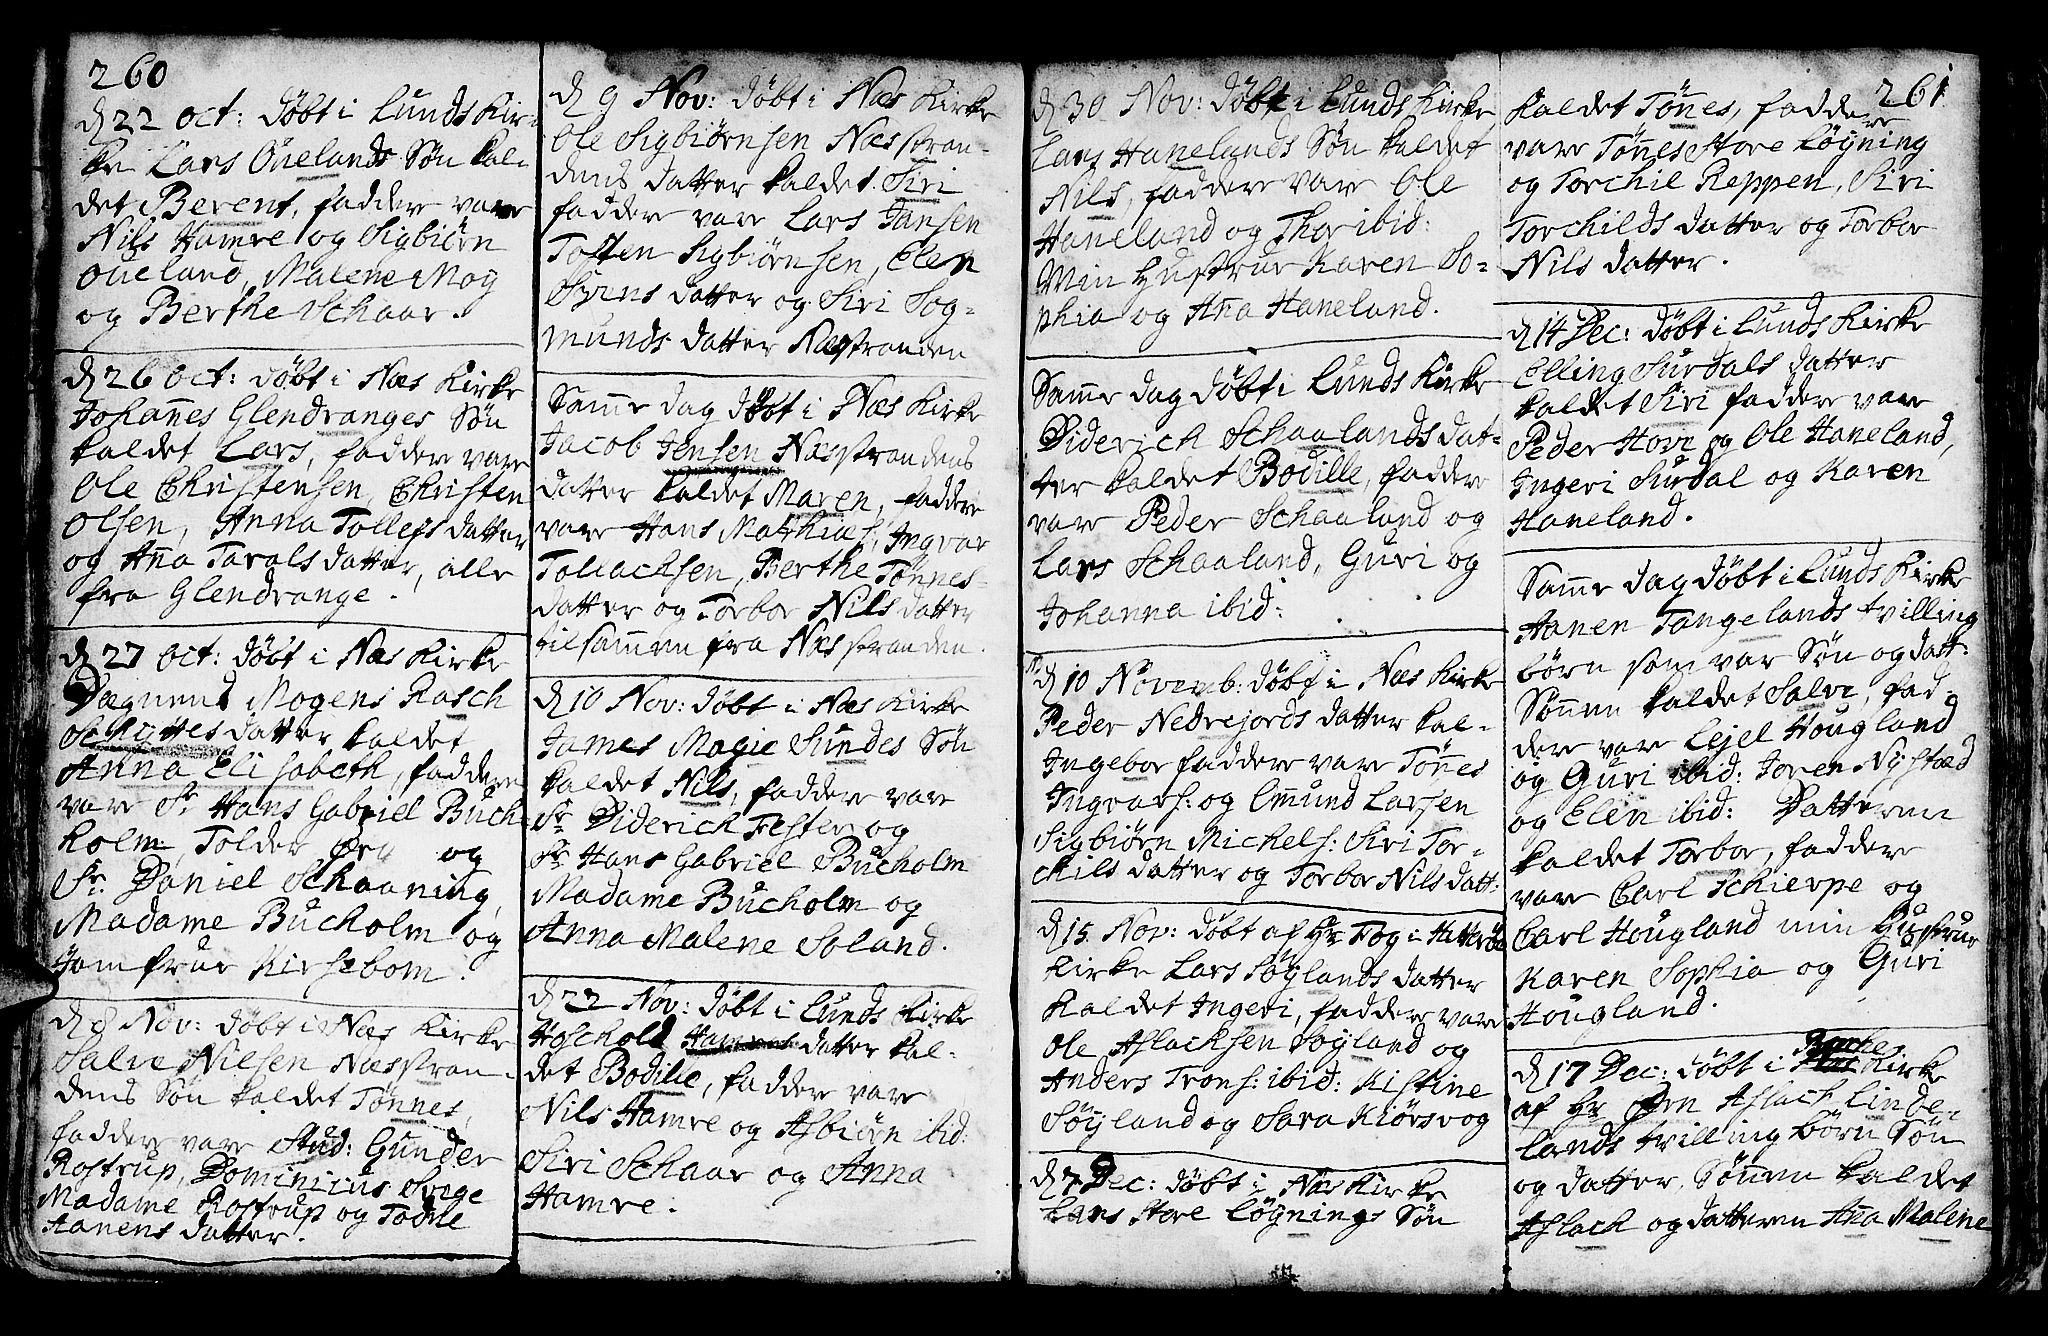 260
d 22 Oct: døbt i Lunds Kir-
ke Lars Ouelands Søn kal-
det Berent, faddere vare
Nils Hamre og Sigbiørn
Oueland, Malene Moy
og Berthe Schaar.
d 26 Oct: døbt i Næs Kirke
Johan̄es Glendranges Søn
kaldet Lars, faddere vare
Ole Christensen, Christen
Olsen, Anna Tollefs datter
og An̄a Tarals datter, alle
fra Glendrange.
d 27 Oct: døbt i Næs Kirke
Mogens Rasch
Schyttes datter kaldet
Anna Elisabeth, faddere
vare Sr Hans Gabriel Buch-
holm, Tolder og
Sr. Daniel Schaaning,
Madame Bucholm og
Jomfrue Kirsebom.
d 8 Nov: døbt i Næs Kirke
Salve Nilsen Næsstran-
dens Søn kaldet Tønnes,
faddere vare Stud: Gunder
Rostrup, Dominicus
Madame Rostrup og
Hanens datter.
d 9 Nov: døbt i Næs Kirke
Ole Sigbiørnsen Næsstran-
dens datter kaldet Siri
faddere vare Lars Jansen
Tosten Sigbiørnsen, Elen
Syrens datter og Siri Sog-
munds datter Næsstranden
Sam̄e dag døbt i Næs Kirke
Jacob Jensen Næsstrandens
datter kaldet Maren, faddere
vare Hans Mathias, Ingvar
Tollachsen, Berthe Tønnes-
datter og Torbor Nils datter
tilsam̄en fra Næsstranden.
d 10 Nov: døbt i Næs Kirke
James Magie Sundes Søn
kaldet Nils, faddere vare
Sr Diderich Fester og
Sr Hans Gabriel Bucholm
Madame Bucholm og
Anna Malene Soland.
d 22 Nov: døbt i Lunds Kirke
Hoschold Hamres datter kal-
det Bodille, faddere vare
Nils Hamre og Asbiørn ibid:
Siri Schaar og Anna
Hamre.
d 30 Nov: døbt i Lunds Kirke
Lars Hanelands Søn kaldet
Nils, faddere vare Ole
Haneland og Thor ibid:
Min Hustrue Karen So-
phia og An̄a Haneland.
Sam̄e dag døbt i Lunds Kirke
Diderich Schaalands dat-
ter kaldet Bodille, faddere
vare Peder Schaaland og
Lars Schaaland, Guri og
Johanna ibid:
d 10 Novemb: døbt i Næs Kirke
Peder Nedrejords datter kal-
Ingebor faddere vare Tøn̄es
Ingvars: og Omund Larsen
Sigbiørn Michels: Siri Tor-
chils datter og Torbor Nils datt:
d 15 Nov: døbt af Hr Fog i Hitterøe
Kirke Lars Søylands datter
kaldet Ingeri, faddere vare
Ole Aslachsen Søyland og
Anders Trons: ibid: Kistine
Søyland og Sara Kiørsvog
d 7 Dec: døbt i Næs Kirke
Lars Store Løynings Søn
261
kaldet Tøn̄es, faddere
vare Tøn̄es Store Løyning
og Torchil Reppen, Siri
Torchilds datter og Torbor
Nils datter.
d 14 Dec: døbt i Lunds Kirke
Elling Surdals datter
kaldet Siri faddere vare
Peder Hove og Ole Haneland,
Ingeri Surdal og Karen
Haneland.
Sam̄e dag døbt i Lunds Kirke
Aanen Tangelands tvilling
børn som var Søn og datt:
Søn̄en kaldet Salve, fad
dere vare Lejel Hougland
og Guri ibid: Joren Nystæd
og Elin ibid: Datteren
kaldet Torbor, faddere
vare Carl Schierpe og
Carl Hougland min Hustrue
Karen Sophia og Guri
Hougland.
d 17 Dec: døbt i Kirke
af Hr Aslach Linde-
lands tvilling børn Søn
og datter. Søn̄en kaldet
Aslach og datteren An̄a Malene